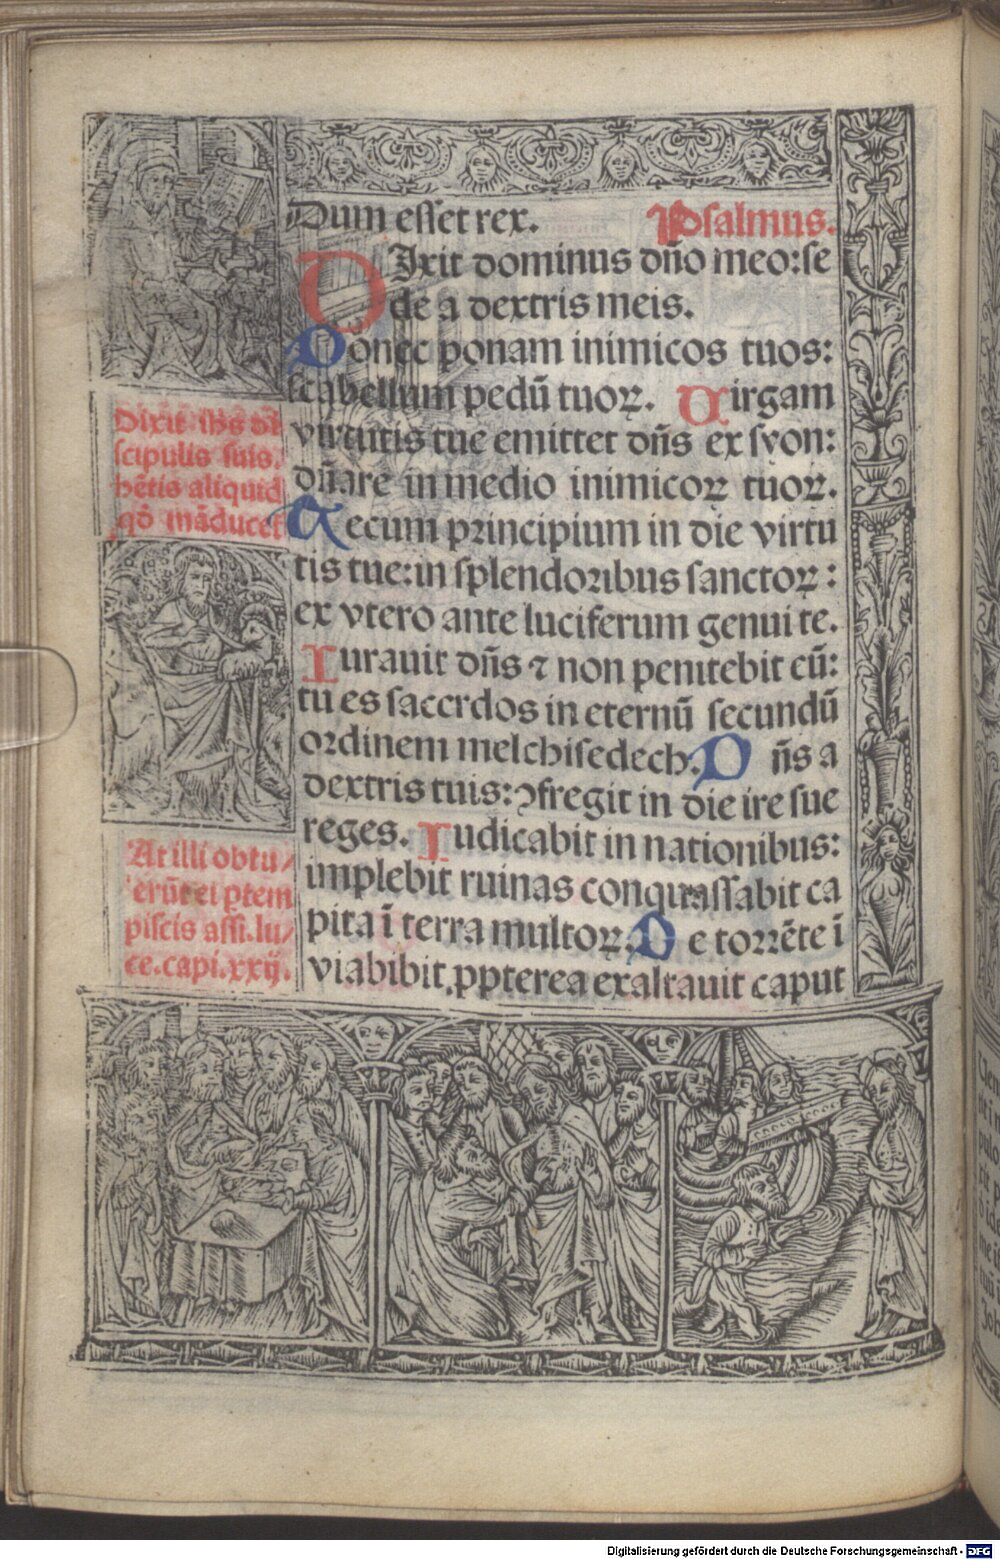 Dum esset rex. Psalmus.
DIxit dominus dño meo:se
de a dextris meis.
Donec ponam inimicos tuos:
scabellum pedũ tuoꝝ. Uirgam
virtutis tue emittet dñs ex syon:
dñare in medio inimicoꝝ tuoꝝ.
Tecum principium in die virtu
tis tue:in splendoribus sanctoꝝ:
ex vtero ante luciferum genui te.
Iurauit dñs ⁊ non penitebit eũ:
tu es sacerdos in eternũ secundũ
ordinem melchisedech. Dñs a
dextris tuis:ꝯfregit in die ire sue
reges. Iudicabit in nationibus:
implebit ruinas conquassabit ca
pita ĩ terra multoꝝ. De torrẽte ĩ
via bibit,ppterea exaltauit caput
Dixit ihs di
scipulis suis.
hẽtis aliquid
qđ mãducet
At illi obtu/
lerũt ei ptem
piscis assi.lu/
ce.capi.xxij.
Digitalisierung gefördert durch die Deutsche Forschungsgemeinschaft - DFG